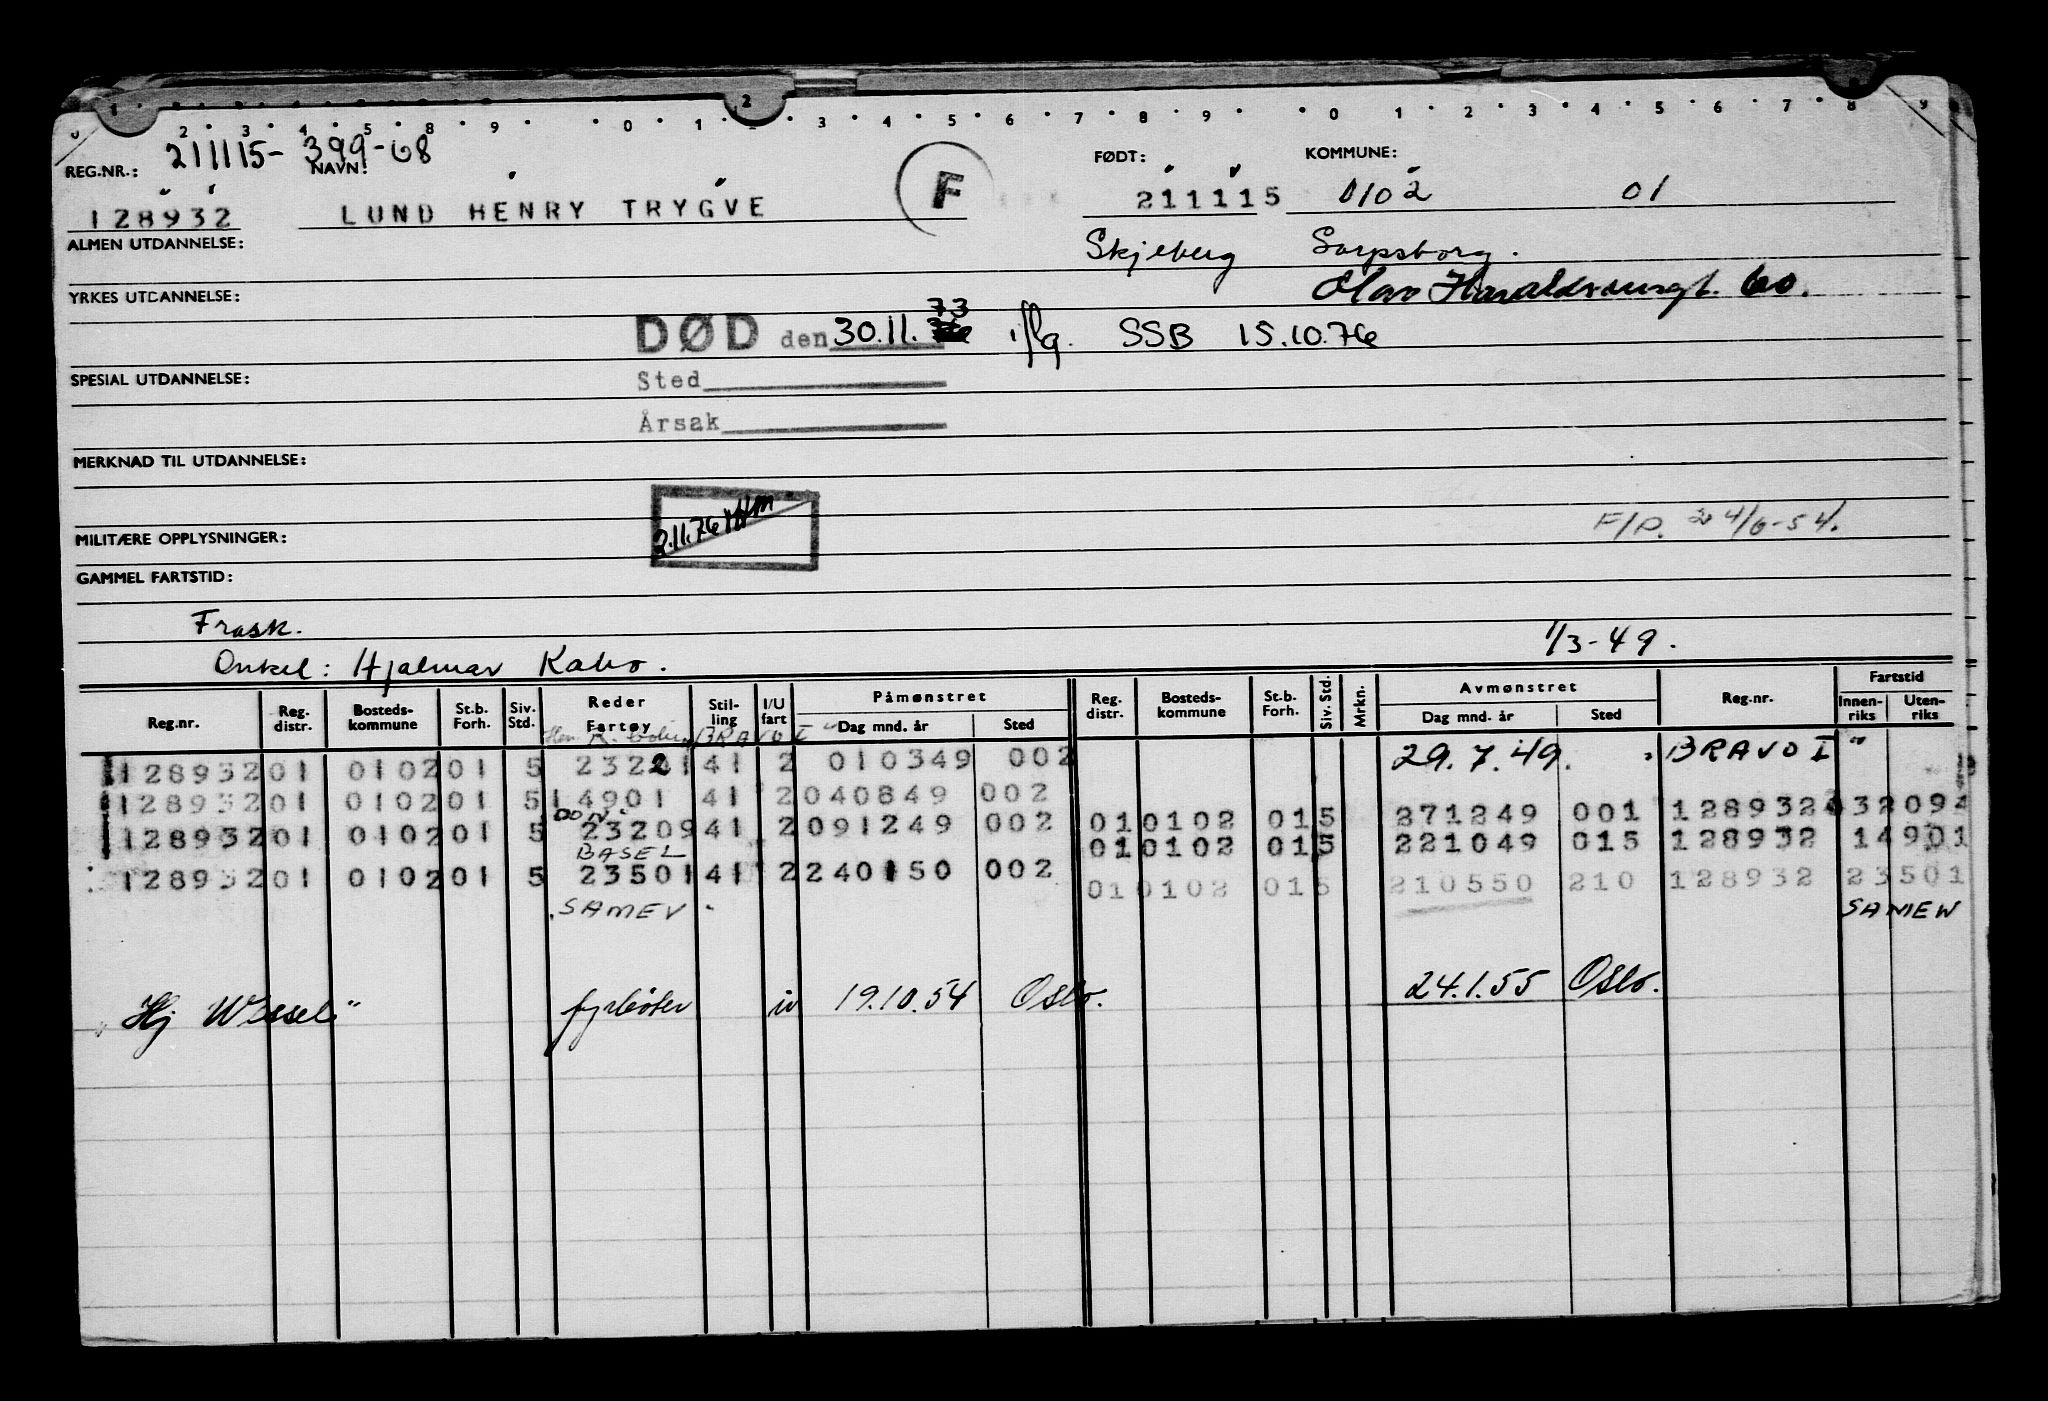 REG.NR.: 211115- 399-08 NAVN: FØDT: KOMMUNE:
128932 LUND HENRY TRYGVE F 211115 0102 01
ALMEN UTDANNELSE: Skjeberg Sarpsborg.
YRKES UTDANNELSE: 60.
DØD den 30.11. 73 iflg. SSB 15.10.76
SPESIAL UTDANNELSE: Sted
Årsak
MERKNAD TIL UTDANNELSE:
2.11.76
MILITÆRE OPPLYSNINGER: F/P. 24/6-54.
GAMMEL FARTSTID:
Frask. 1/3-49.
Onkel: Hjalmar Kabo.
Reg.nr. Reg. distr. Bosteds- kommune St.b. Forh. Siv. Std. Reder Fartøy Stil- ling I/U fart Påmønstret Dag mnd. år Sted Reg. distr. Bosteds- kommune St.b. Forh. Siv. Std. Mrkn. Avmønstret Dag mnd. år Sted Reg.nr. Fartstid Innen- riks Uten- riks
BRAVO I
128932 01 0102 01 5 23221 41 2 010349 002 29.7.49. "BRAVO I"
128932 01 0102 01 5 14901 41 2 040849 002
DON
128932 01 0102 01 5 23209 41 2 091249 002 01 0102 01 5 271249 001 128932 32094
BASEL 01 0102 01 5 221049 015 128932 14901
128932 01 0102 01 5 23501 41 2 240150 002 01 0102 01 5 210550 210 128932 23501
SAMEV. SAMEW
"Hj Wessel" fyrbøter iu 19.10.54 Oslo. 24.1.55 Oslo.